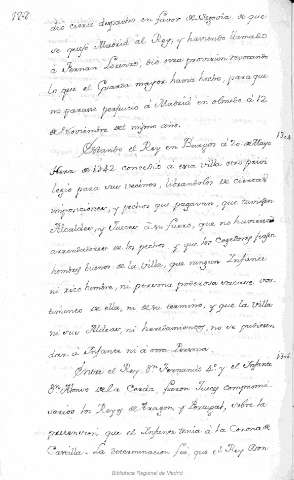 dio cierto despacho en favor de Segovia de que
se quejó Madrid al Rey, y haviendo llamado
á Fernan Lorenzo, dio otra provision revocando
lo que el Guarda mayor havia hecho, para que
no parase perjuicio á Madrid en Olmedo á 12
de Noviembre del mismo año.
Estando el Rey en Burgos á 20 de Mayo 1304
Hera de 1342 concedió á esta villa otro privi
legio para sus vecinos, librandolos de ciertas
imposiciones, y pechos que pagavan, que tuviesen
Alcaldes, y Jueces á su fuero, que no huviesen
arrendadores de los pechos y que los Cogedores fuesen
hombres buenos de la villa, que ningun Infante
ni rico hombre, ni persona poderosa
de ella, ni de su termino, y que la villa
ni sus Aldeas, ni heredamientos, no se pudiesen
dar á Infante ni á otra Persona.
Entre el Rey Dn Fernando 4º y el Infante
Dn Alonso de la Cerda, fueron Jueces compromi
sarios los Reyes de Aragon, y Portugal, sobre la
pretension que el Infante tenia á la Corona de
Castilla. La determinacion fue, que el Rey Don
Biblioteca Regional de Madrid